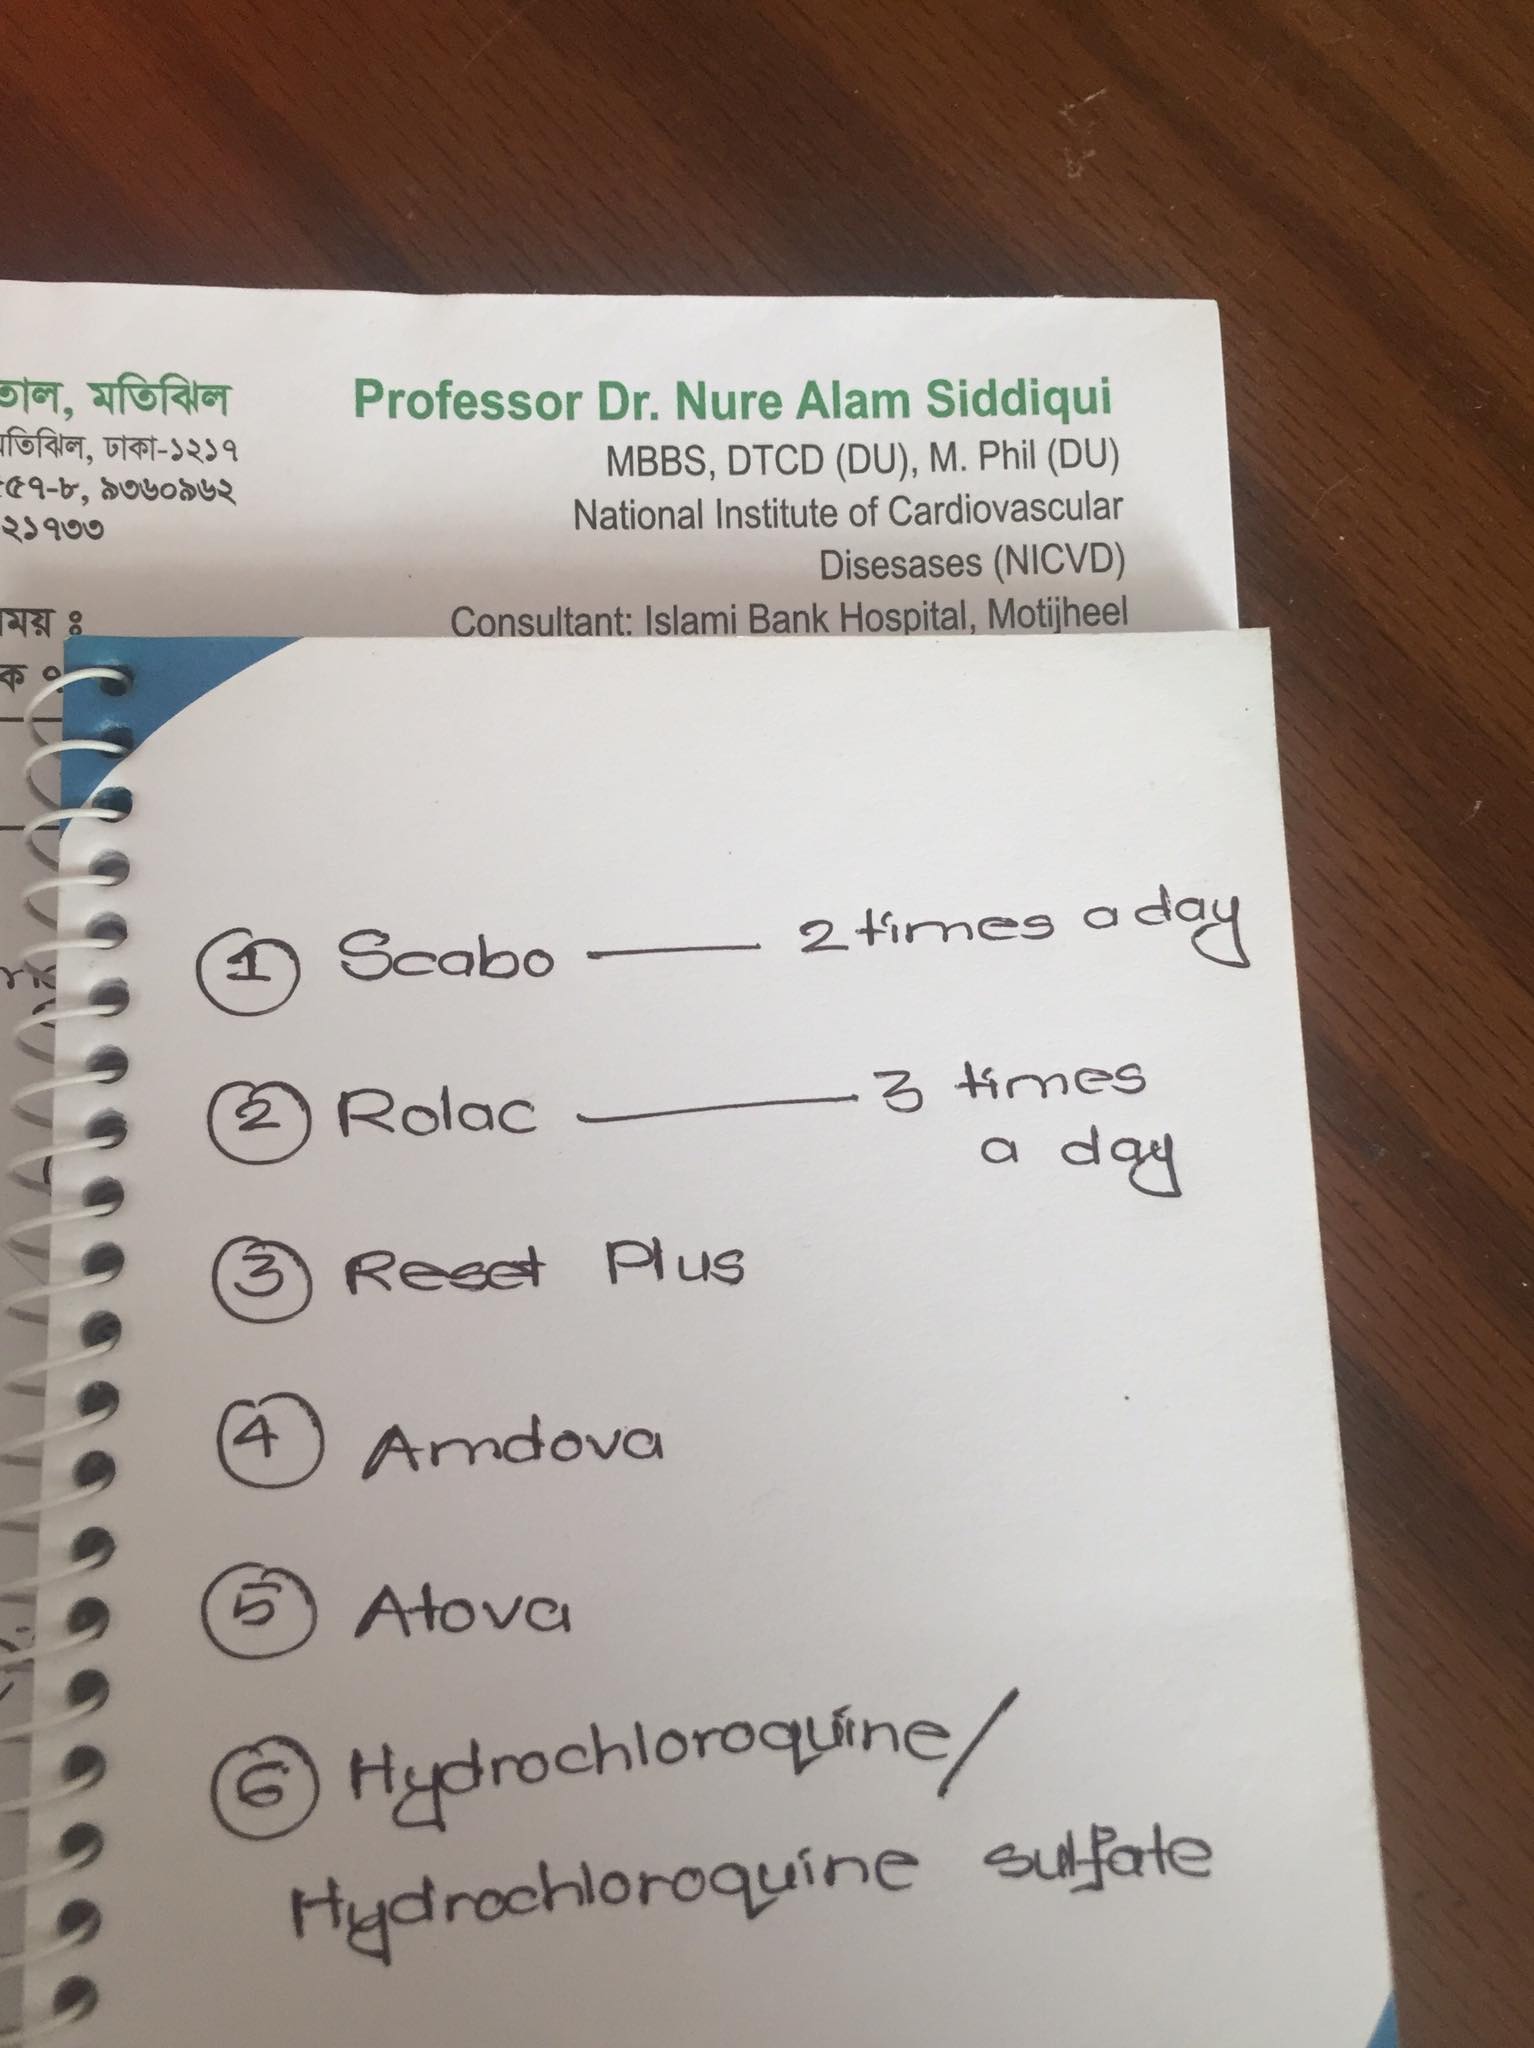 তাল, মতিঝিল
মতিঝিল, ঢাকা-১২১৭
৫৭-৮, ৯৩৬০৯৬২
২১৭৩৩
ময় ঃ
Professor Dr. Nure Alam Siddiqui
MBBS, DTCD (DU), M. Phil (DU)
National Institute of Cardiovascular
Disesases (NICVD)
Consultant: Islami Bank Hospital, Motijheel
1 Scabo — 2 times a day
2 Rolac — 3 times
a day
3 Reset Plus
4 Amdova
5 Atova
6 Hydrochloroquine/
Hydrochloroquine sulfate